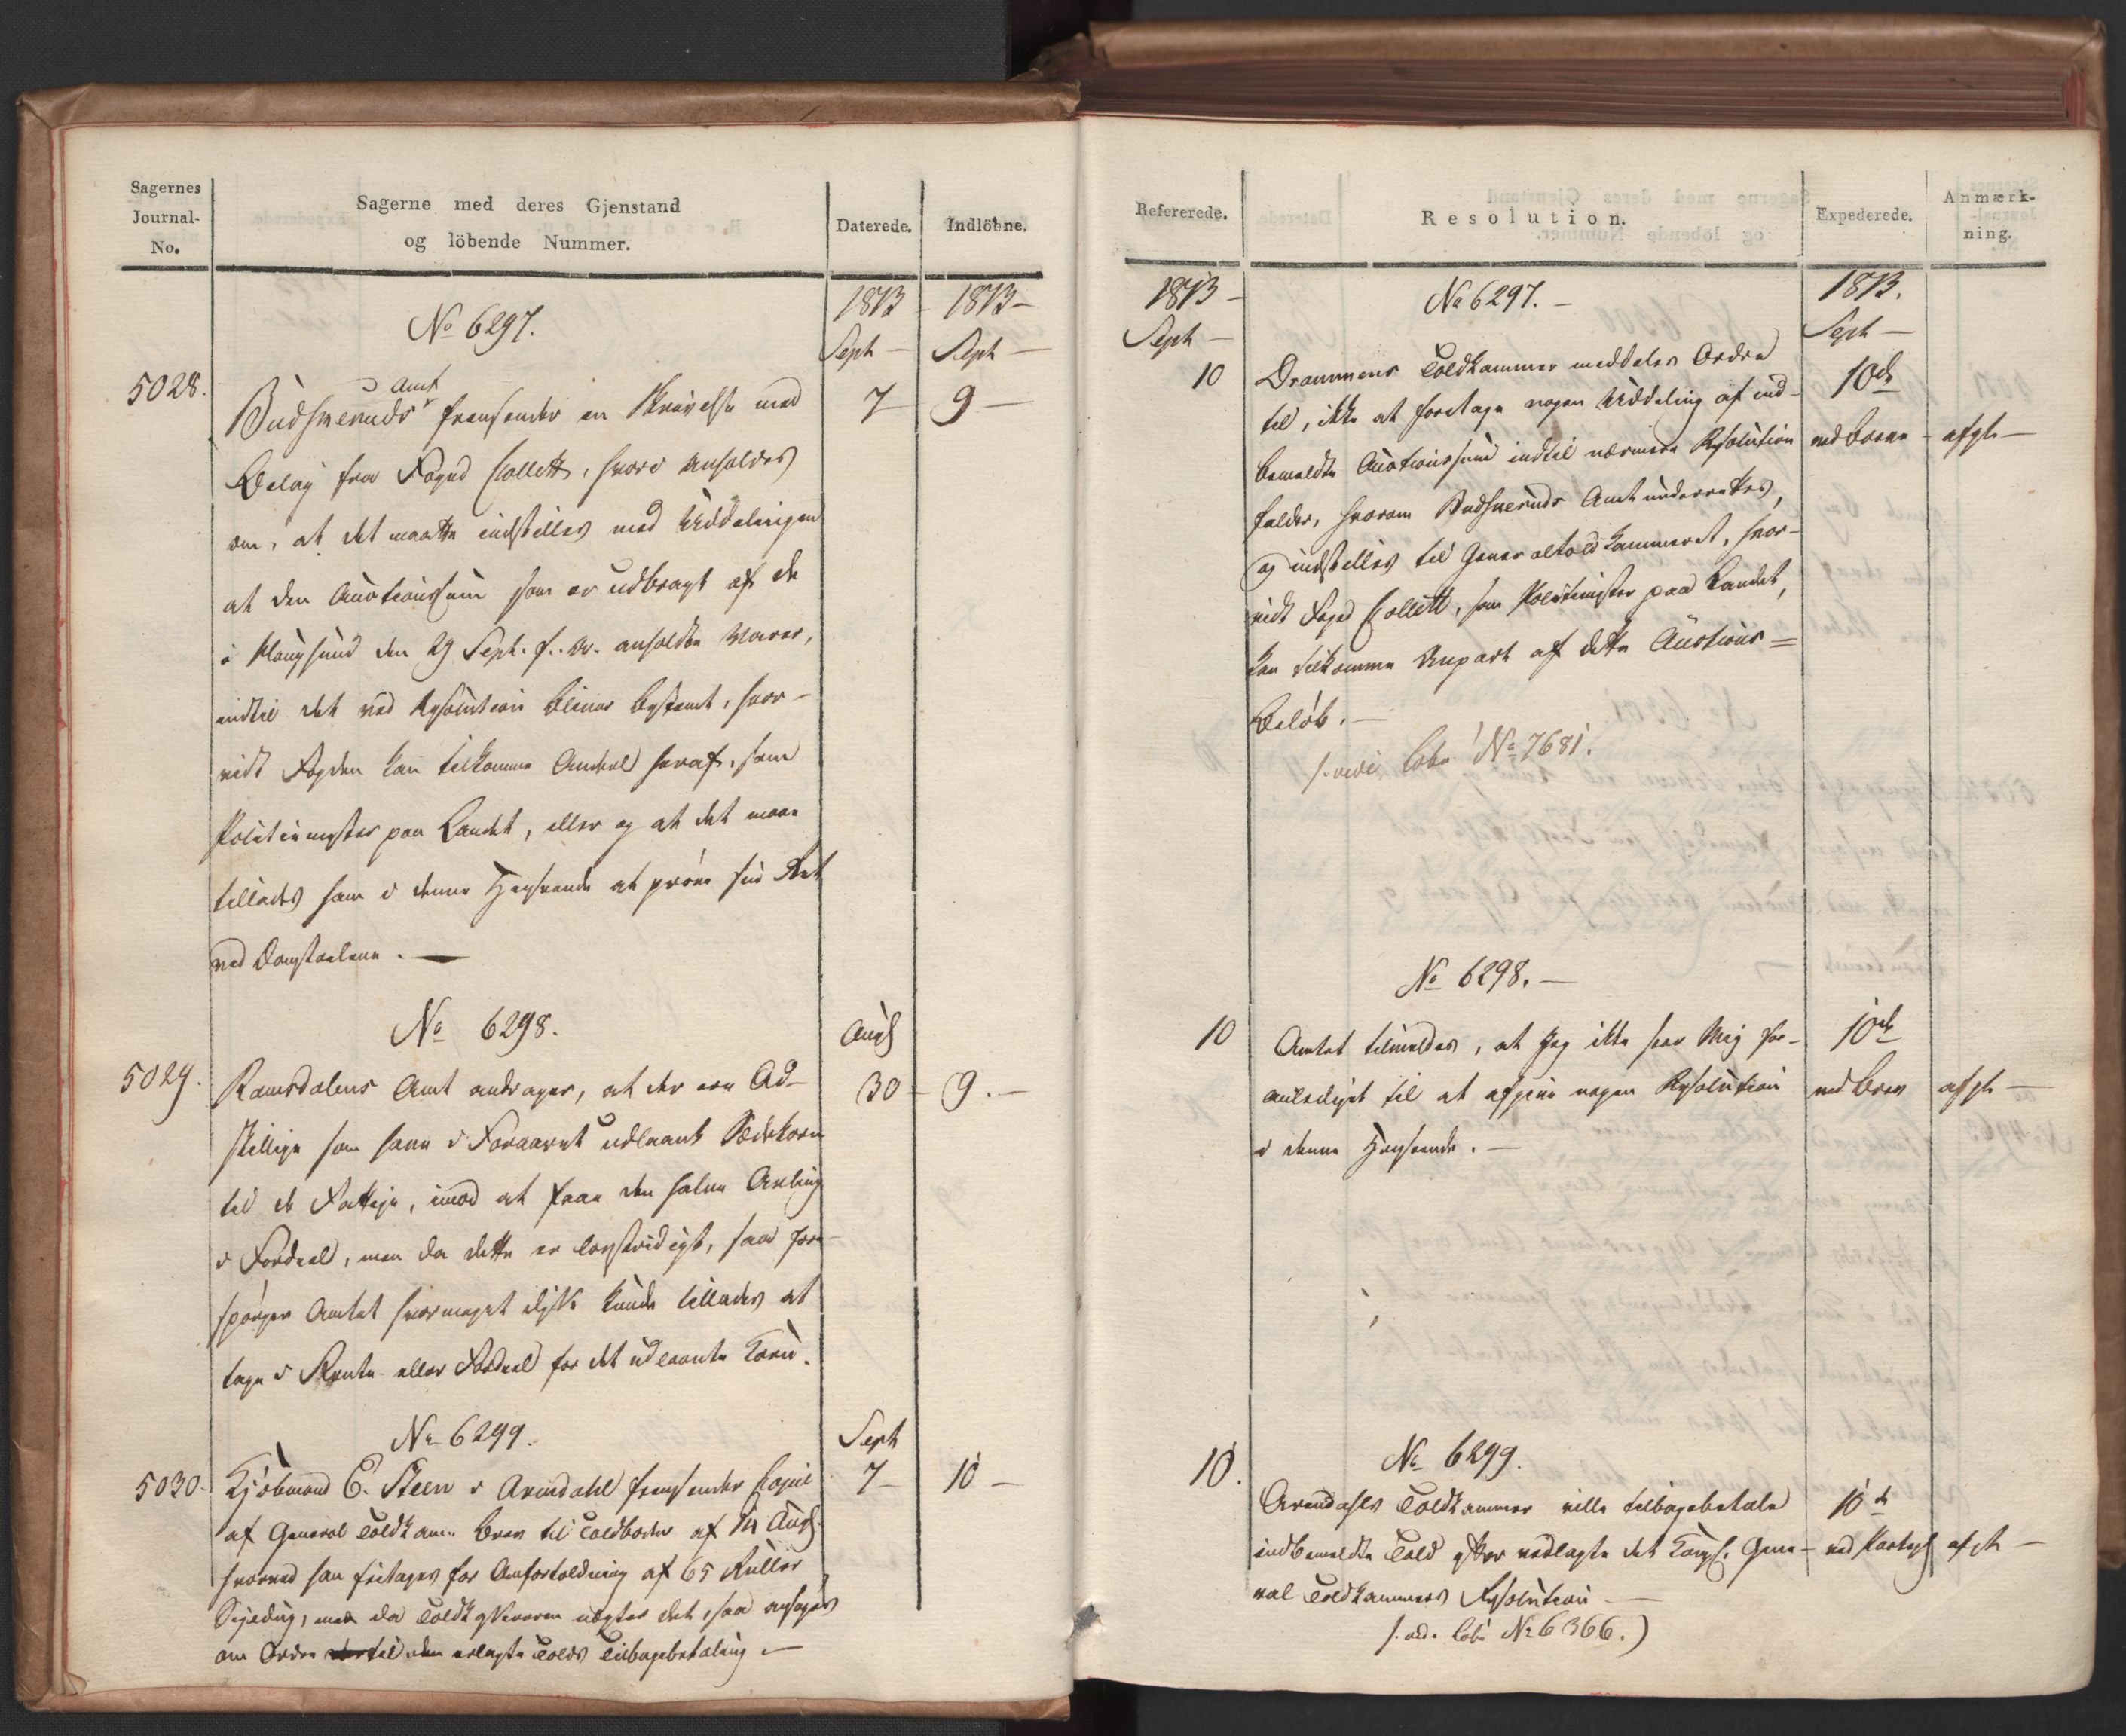 Sagernes
Journal-
No.
Sagerne med deres Gjenstand
og löbende Nummer.
Daterede.
Indlöbne.
1813 - 1813 -
No 6297.
Sept - Sept -
5028.
Amt
Budskeruds fremsender en Skrivelse med
7 - 9 -
Belag fra Foged Collett, hvori ansoldes
om, at det maatte indstilles med Uddelingen
at den Auctionssum som er udbragt af de
i Klougsund den 29 Sept. f. A. anholdte Varer,
indtil det ved Resolution bliver bestemt, hvor-
vidt Fogden kan tilkomme Andeel heraf, som
Politiemester paa Landet, eller og at det maae
tillades ham i denne Henseende at pröve sin Ret
ved Domstolene. -
No 6298.
Augs
5029.
Romsdalens Amt andrager, at der ere Ad-
30 - 9. -
skillige som have i Foraaret udlaant Sædekorn
til de Fattige, imod at faae den halve Avling
i Fordeel, men da dette er lovstridigt, saa fore-
spörger Amtet hvormeget disse kunde tillades at
tage i Rente eller Fordeel for det udlaante Korn.
No 6299.
Sept
5030.
Kjöbmand C. Steen i Arendahl fremsender Copie
7 - 10 -
af General Toldkam. Brev til Toldboden af 14 Augs.
hvorved han fritages for Anfortoldning af 65 Ruller
Sejldug, men da Toldkassereren nægter det, saa ansöges
om Ordre til den erlagte Tolds Tilbagebetaling -
Refererede.
Resolution.
Expederede.
Anmærk-
ning.
1813 -
No 6297. -
1813.
Sept -
Sept -
10
Drammens Toldkammer meddeles Ordre
10de
til, ikke at foretage nogen Uddeling af ind-
bemeldte Auctionssum indtil nærmere Resolution
ved Breve - afgk -
falder, hvorom Budskeruds Amt underrettes,
og indstilles til Generaltoldkammeret, hvor-
vidt Foged Collett, som Politimester paa Landet,
kan tilkomme Anpart af dette Auctions =
Belöb. -
No 7681.
No 6298. -
10
Amtet tilmeldes, at Jeg ikke seer Mig for-
10de
anlediget til at afgive nogen Resolution
ved Brev afgk -
i denne Henseende. -
No 6299.
10.
Arendahls Toldkammer ville tilbagebetale
10de
indbemeldte Told efter vedlagte det Kongl. Gene-
ved Paategn afgk -
ral Toldkammers Resolution -
No 6366.)